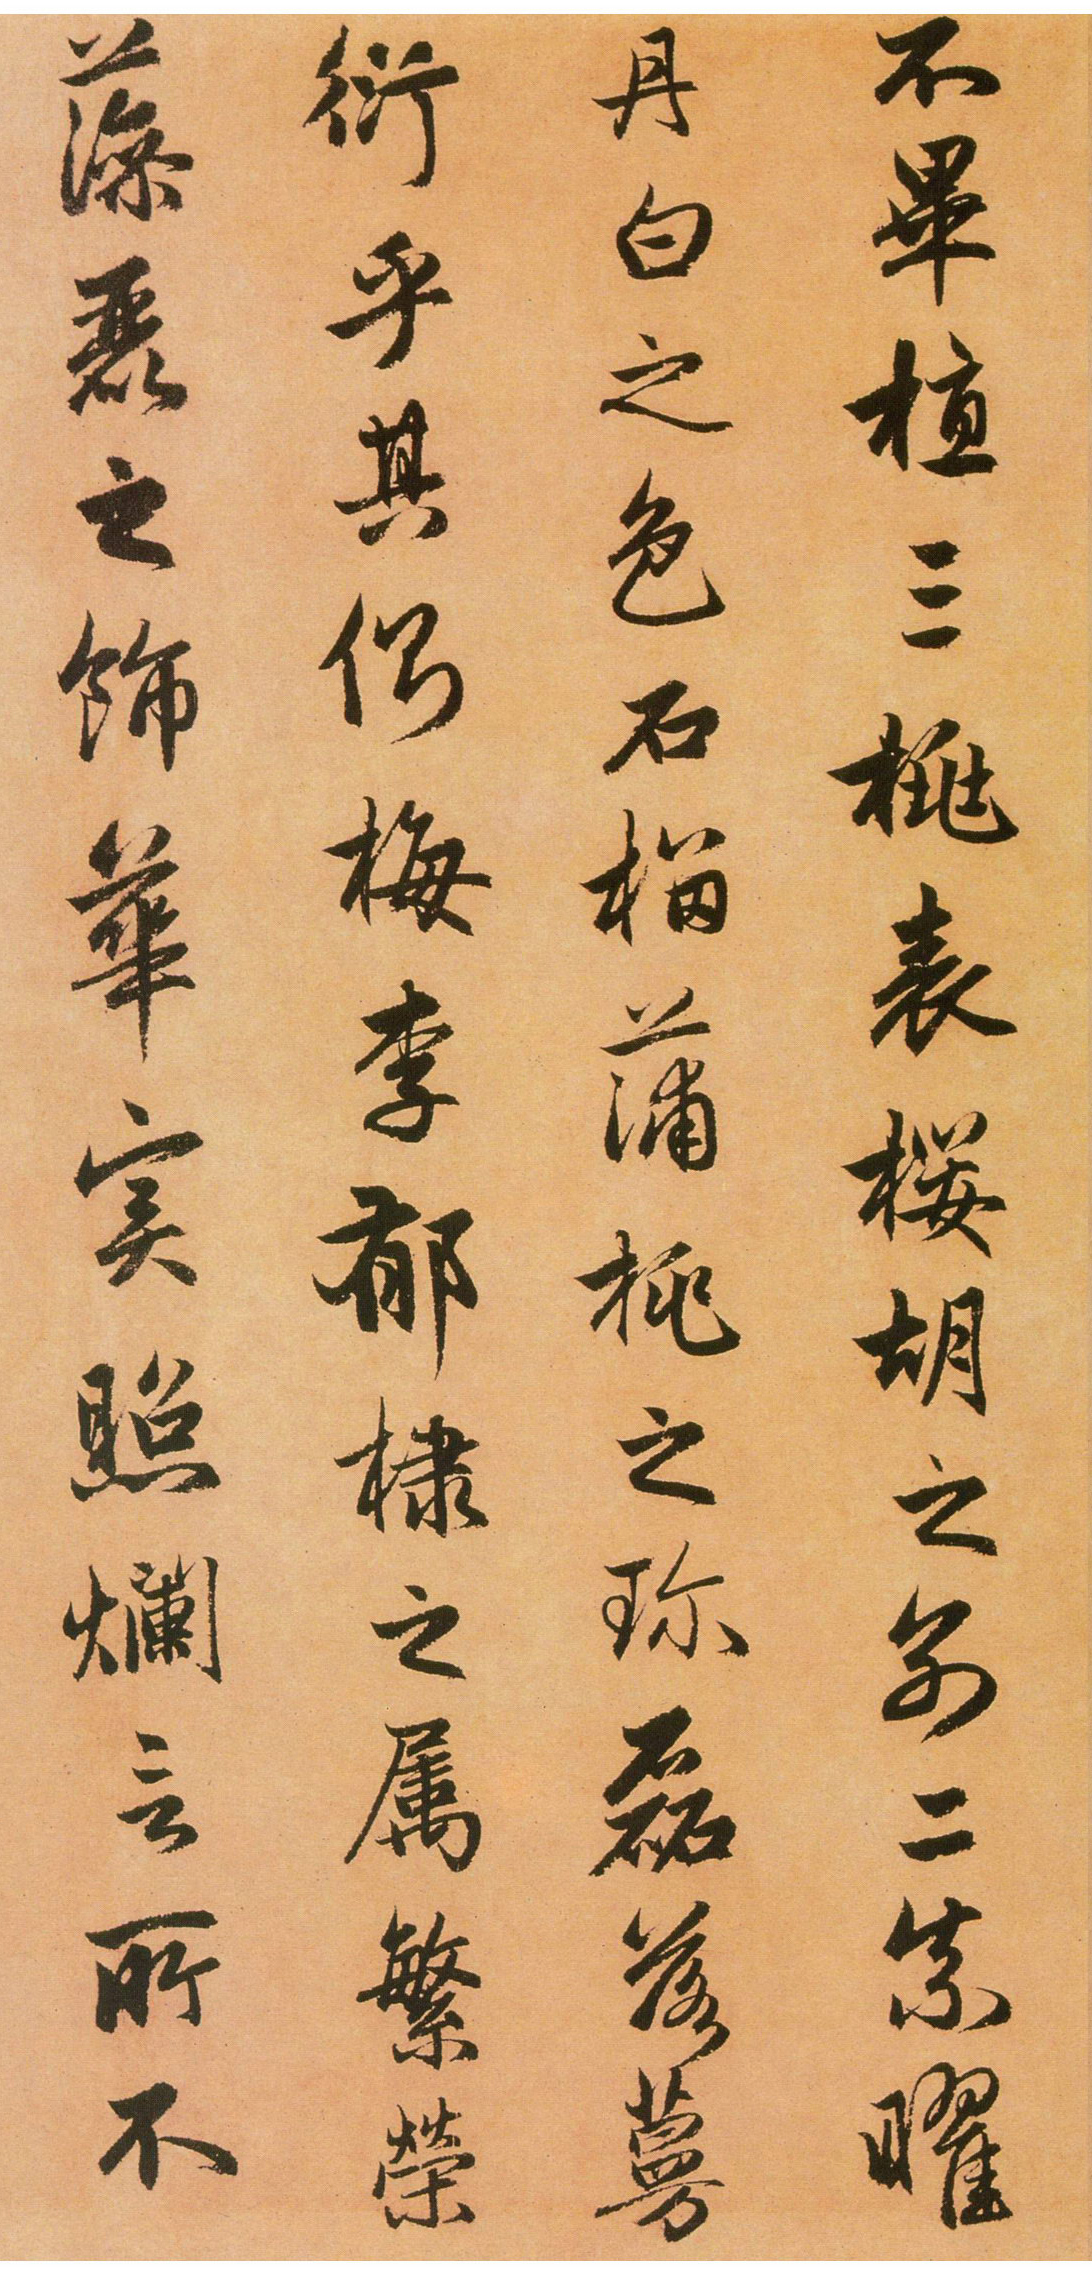 不畢植三桃表櫻胡之別二柰曜
丹白之色石榴蒲桃之珍磊落蔓
衍乎其側梅李郁棣之属繁榮
藻麗之飾華实照爛言所不